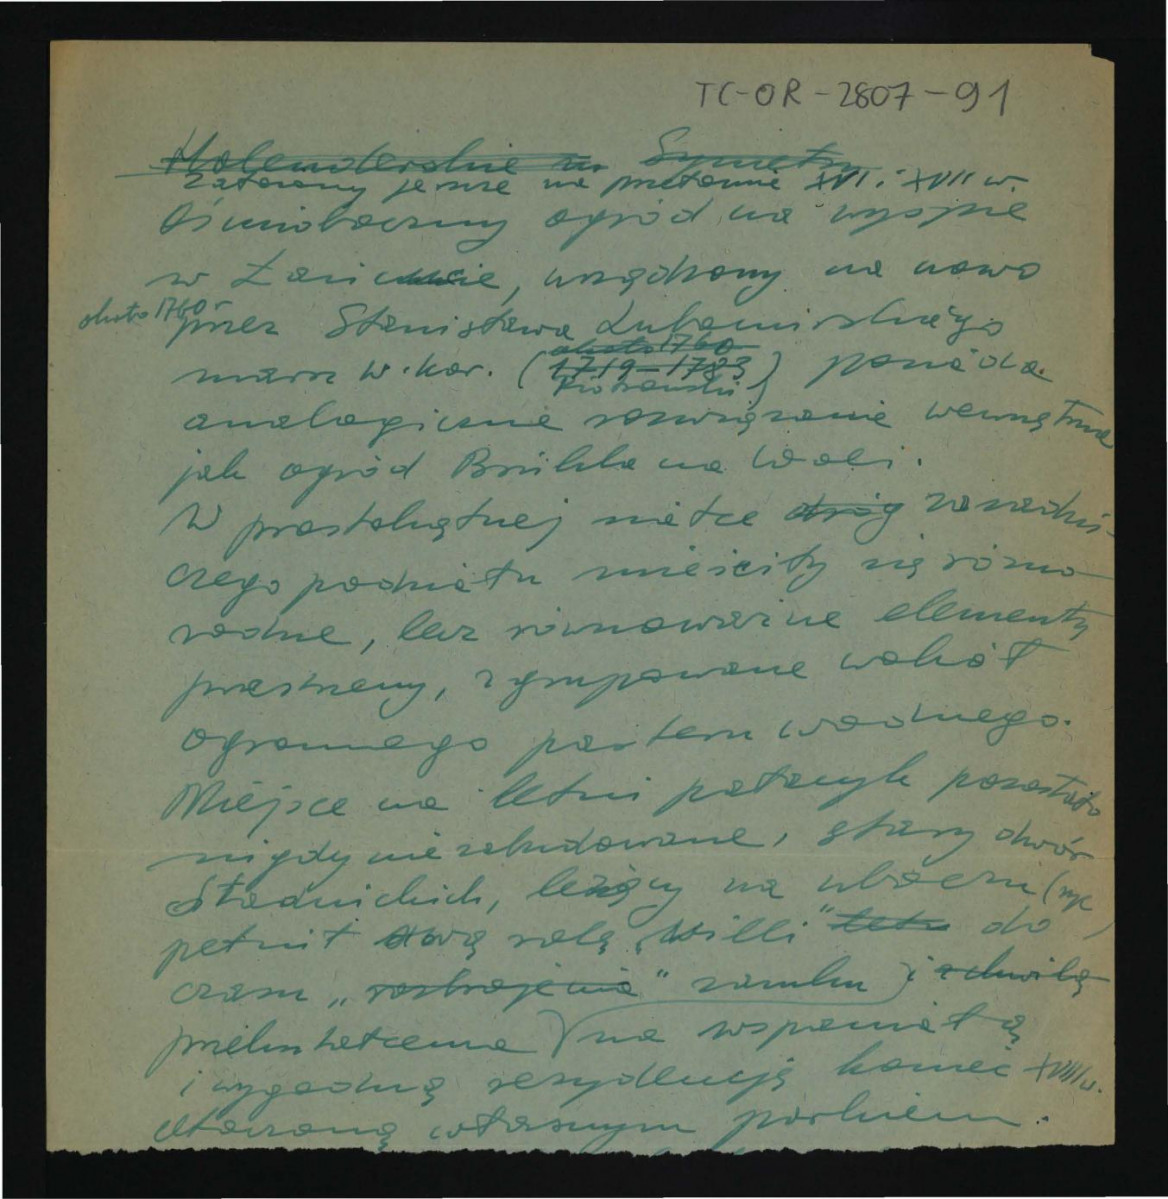 TC-OR-2807-91
Holenderskie w Symetry
założony jeszcze na przełomie XVI i XVII w.
Ośmioboczny ogród na wyspie
w Łańcucie, urządzony na nowo
około 1760 r
przez Stanisława Lubomirskiego
około 1760
marsz. w. kor. (1719-1783) posiada
Piotrowski
analogiczne rozwiązanie wewnętrzne
jak ogród Brühla na Woli.
W prostokątnej siatce dróg zasadni-
czego podziału mieściły się różno
rodne, lecz równoważne elementy
przestrzeny, zgrupowane wokół
ogromnego parteru wodnego.
Miejsce na letni pałacyk pozostało
nigdy nie zabudowane, stary dwór
Stadnickich, leżący na uboczu (wy
pełnił swą rolę „Willi” do
czasu „rozbrojenia” zamku i z chwilą
przekształcenia na wspaniałą
i wygodną rezydencję koniec XVIII w.
otoczoną własnym parkiem.